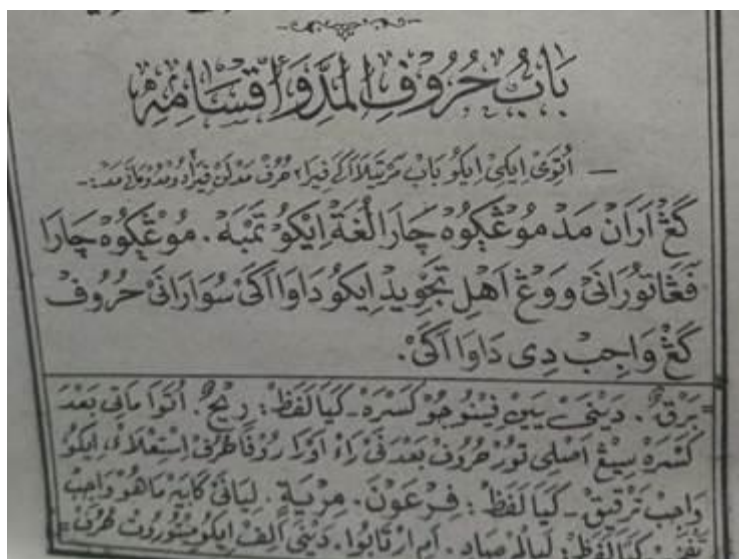 بَابُ حُرُوفِ الْمَدِّ وَأَقْسَامِهِ
— اُتَوِيْ اِيْكِيْ اِيْكُوْ بَابْ مَرْتَيْلَاكَيْ فِيْرَا٢ حُرُفْ مَدْ لَنْ فِيْرَا٢ مَدْ:-
كَڠْ اَرَانْ مَدْ مُوْڠْڮُوْهْ چَارَا لُغَةْ اِيْكُوْ تَمْبَهْ. مُوْڠْڮُوْهْ چَارَا
فَڠَاتُوْرَانَيْ وَوْڠْ اَهْلِ تَجْوِيْدْ اِيْكُوْ دَاوَا اَكَيْ سُوَارَانَيْ حُرُوْفْ
كَڠْ وَاجِبْ دِيْ دَاوَا اَكَيْ.
=بَرْقٌ. دَيْنَيْ يَيْنْ فِيْنُوْجُوْ كَسْرَهْ - كَيَا لَفَظْ: رِيْحٌ. اُتَوَا مَاتِيْ بَعْدَ
كَسْرَهْ سِيْڠْ اَصْلِيْ تُوْرْ حُرُوْفْ بَعْدَنَيْ رَاءْ اَوْرَا رُوْفَا حُرُفْ اِسْتِعْلَاءْ، اِيْكُوْ
وَاجِبْ تَرْقِيْقْ - كَيَا لَفَظْ: فِرْعَوْنَ. مِرْيَةٍ. لِيَانَيْ كَابَيْهْ مَاهُوْ وَاجِبْ
كَيَا لَفَظْ: لَبِالْمِرْصَادِ. اَمِ ارْتَابُوْا. دَيْنَيْ اَلِفْ اِيْكُوْ مِيْتُوْرُوْتْ حُرُفْ=